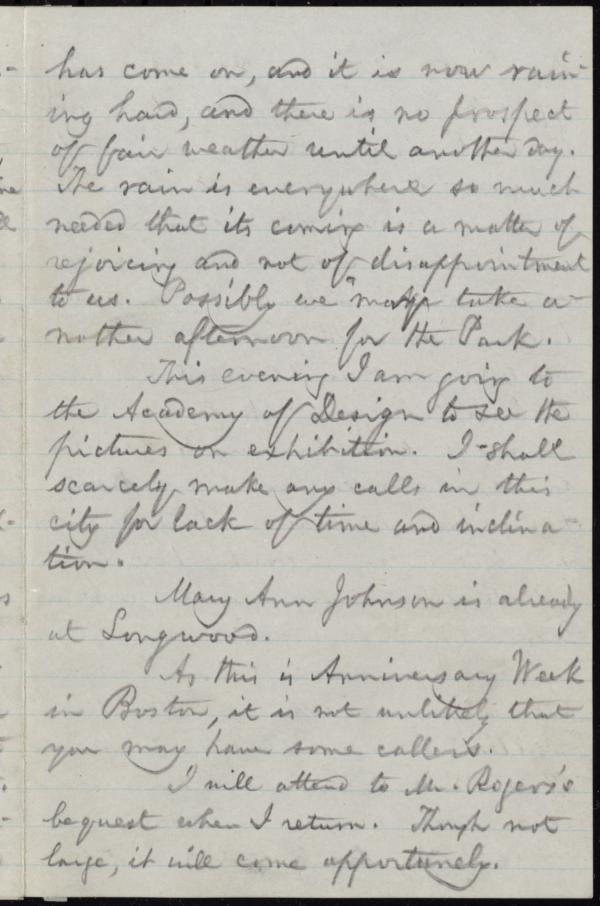 has come on, and it is now rain-
ing hard, and there is no prospect
of fair weather until another day.
The rain is everywhere so much
needed that its coming is a matter of
rejoicing and not of disappointment
to us. Possibly we may take a-
nother afternoon for the Park.
This evening I am going to
the Academy of Design to see the
pictures on exhibition. I shall
scarcely make any calls in this
city for lack of time and inclina-
tion.
Mary Ann Johnson is already
at Longwood.
As this is Anniversary Week
in Boston, it is not unlikely that
you may have some callers.
I will attend to Mr. Rogers's
bequest when I return. Though not
large, it will come opportunely.